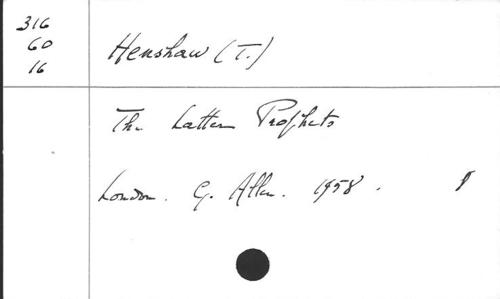 316
60
16
Henshaw (T.)
The Latter Prophets
London. G. Allen. 1958.